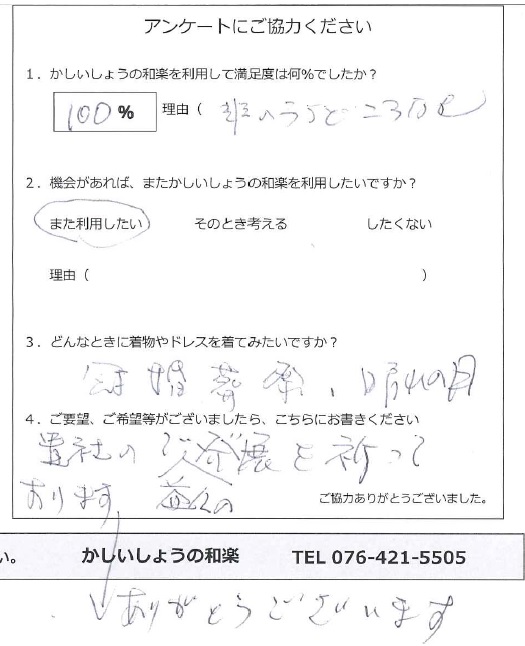 アンケートにご協力ください
1．かしいしょうの和楽を利用して満足度は何%でしたか？
100 % 理由（ 非のうちどころなし
2．機会があれば、またかしいしょうの和楽を利用したいですか？
また利用したい そのとき考える したくない
理由（ ）
3．どんなときに着物やドレスを着てみたいですか？
冠婚葬祭、晴れの日
4．ご要望、ご希望等がございましたら、こちらにお書きください
貴社のご発展を祈って
おります 益々の
ご協力ありがとうございました。
い。 かしいしょうの和楽 TEL 076-421-5505
ありがとうございます